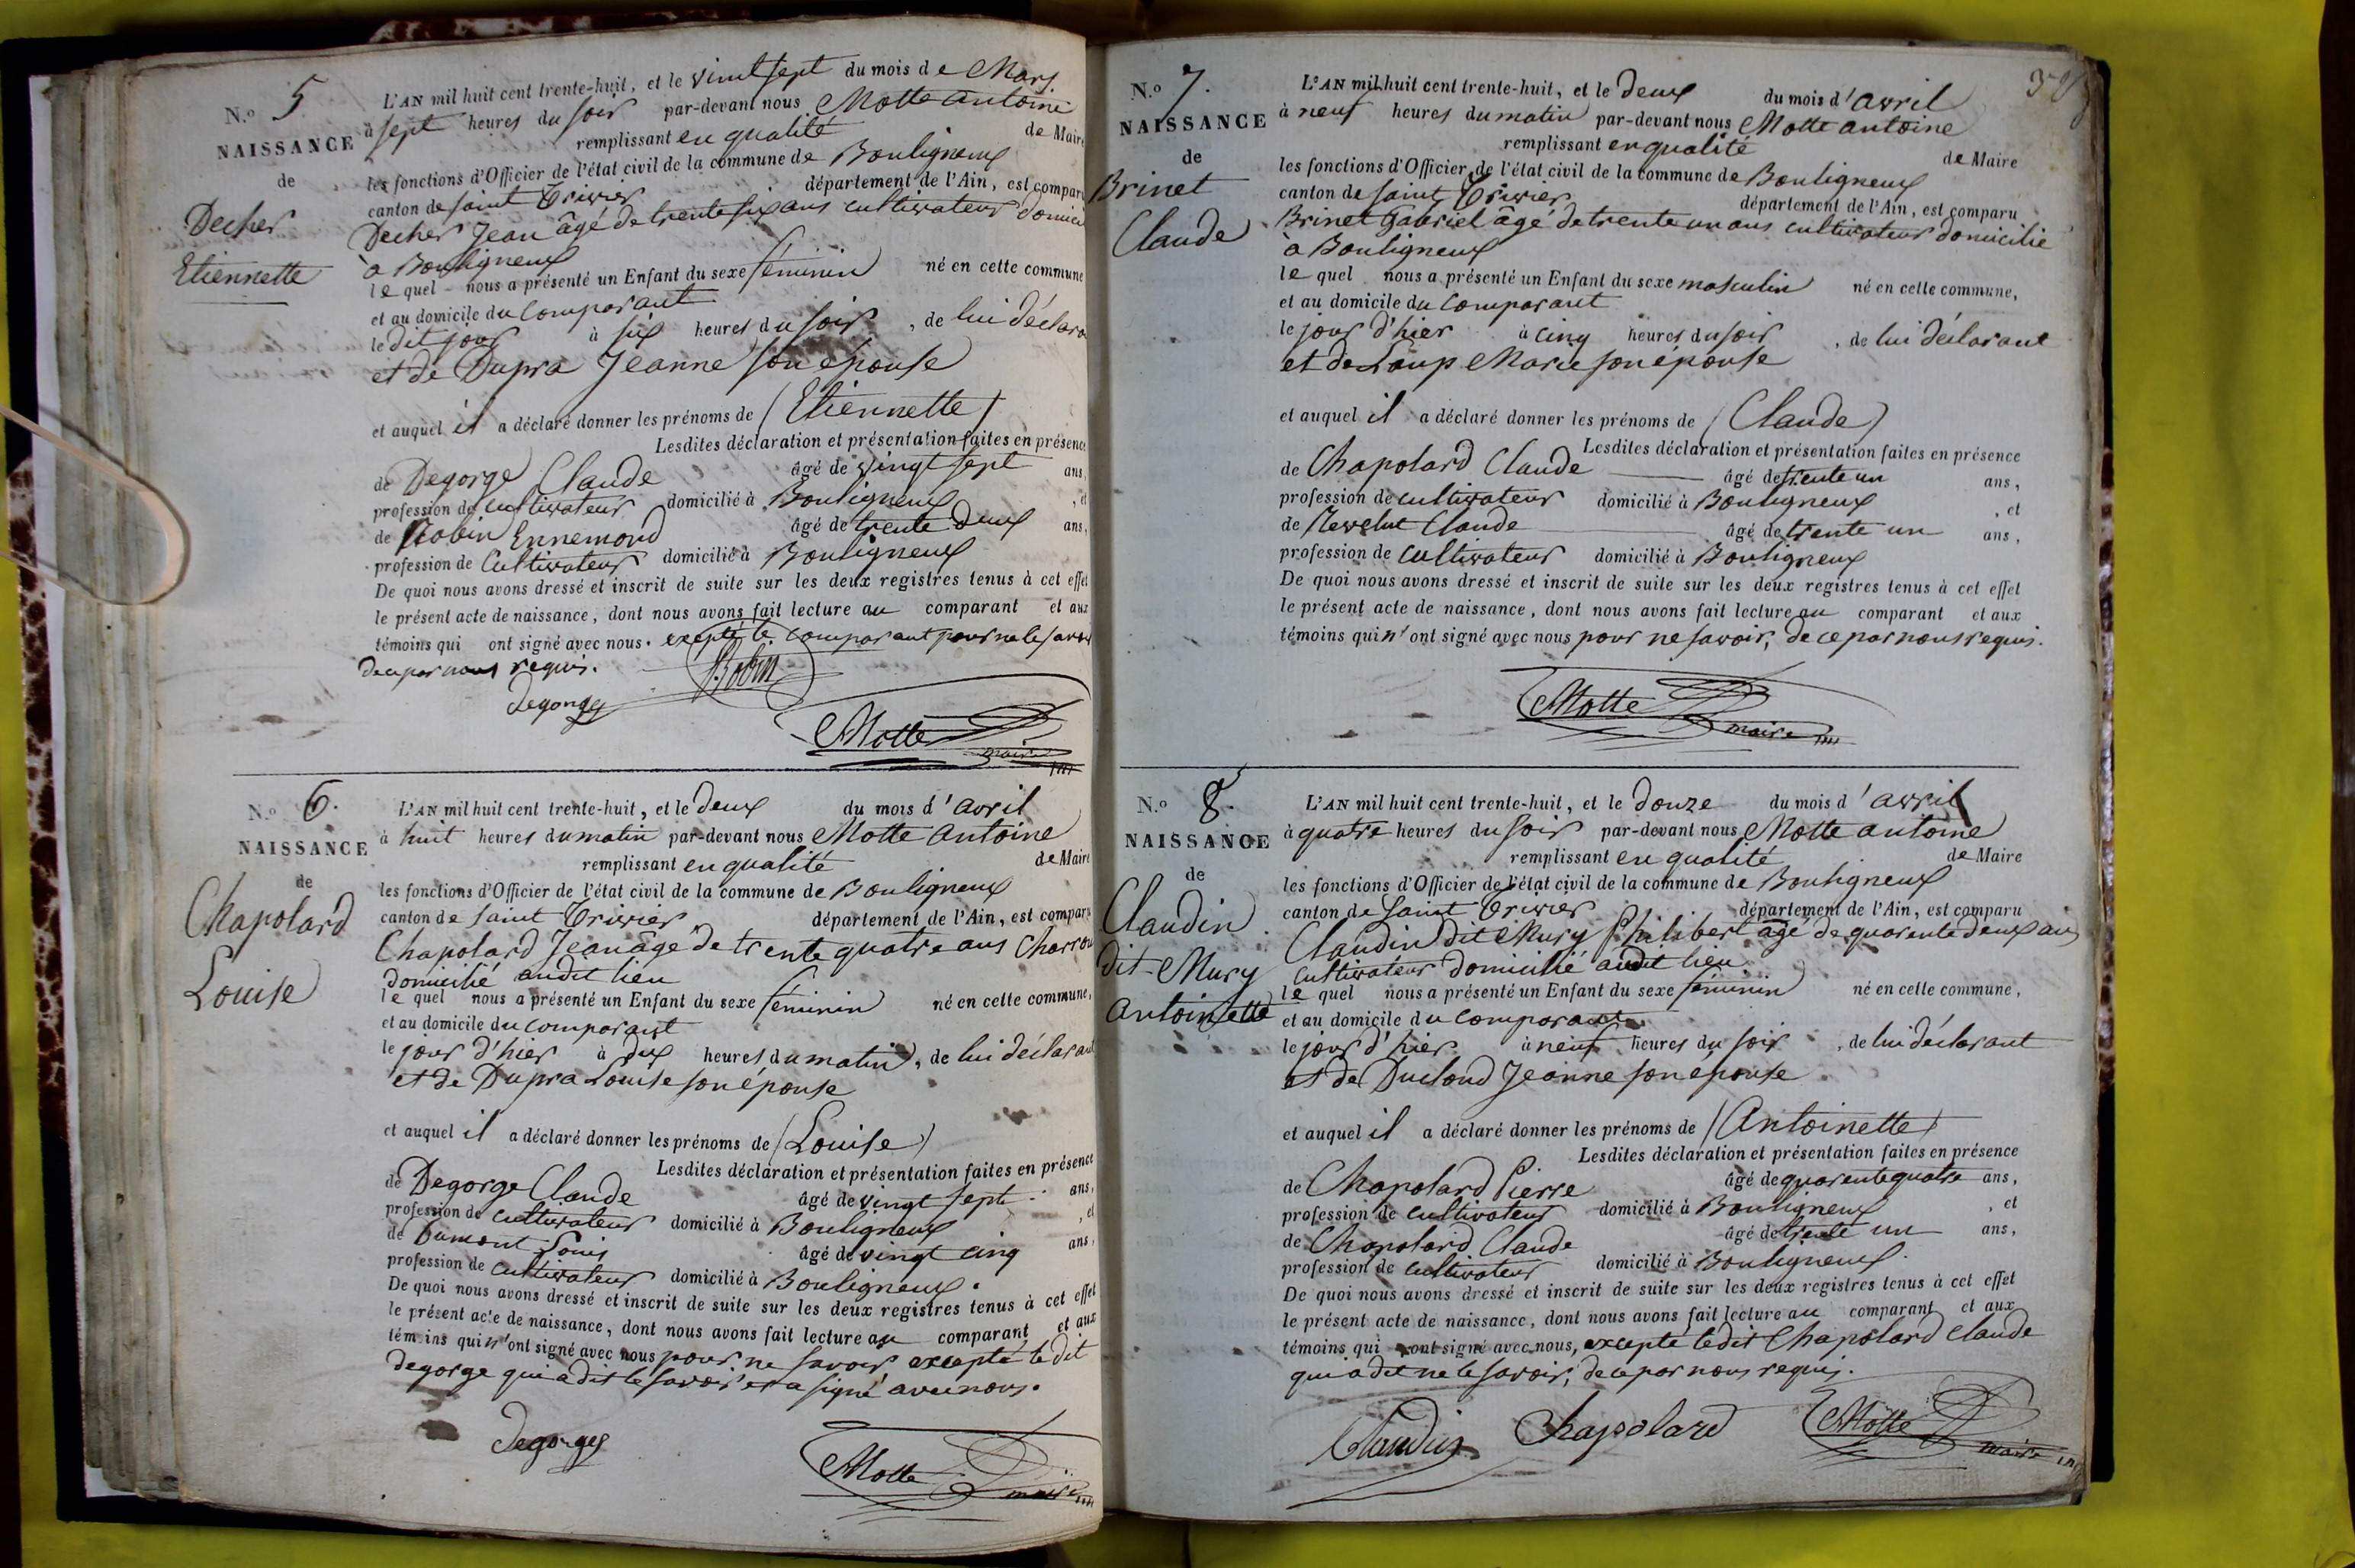 N.o 5
NAISSANCE
de
Decher
Etiennette
L'AN mil huit cent trente-huit, et le vint sept du mois de Mars
à sept heures du soir par-devant nous Motte antoine
remplissant en qualité de Maire
les fonctions d'Officier de l'état civil de la commune de Bouligneux
canton de saint Trivier département de l'Ain, est comparu
Decher Jean âgé de trente six ans cultivateur domici
à Bouligneux
le quel nous a présenté un Enfant du sexe féminin né en cette commune
et au domicile du comparant
le dit jour à six heures du soir, de lui déclara
et de Dupra Jeanne son épouse
et auquel il a déclaré donner les prénoms de (Etiennette)
Lesdites déclaration et présentation faites en présence
de Degorge Claude âgé de vingt sept ans,
profession de cultivateur domicilié à Bouligneux, et
de Robin Ennemond âgé de trente deux ans,
profession de Cultivateur domicilié à Bouligneux
De quoi nous avons dressé et inscrit de suite sur les deux registres tenus à cet effet
le présent acte de naissance, dont nous avons fait lecture au comparant et aux
témoins qui ont signé avec nous. excepté le comparant pour ne le savoir
de ce par nous requis.
Robin
degorges
Motte
maire
N.o 6.
NAISSANCE
de
Chapolard
Louise
L'AN mil huit cent trente-huit, et le deux du mois d'avril
à huit heures du matin par-devant nous Motte antoine
remplissant en qualité de Maire
les fonctions d'Officier de l'état civil de la commune de Bouligneux
canton de saint Trivier département de l'Ain, est comparu
Chapolard Jean âgé de trente quatre ans Charron
domicilié audit lieu
le quel nous a présenté un Enfant du sexe féminin né en cette commune,
et au domicile du comparant
le jour d'hier à dix heures du matin, de lui déclarant
et de Dupra Louise son épouse
et auquel il a déclaré donner les prénoms de (Louise)
Lesdites déclaration et présentation faites en présence
de Degorge Claude âgé de vingt sept ans,
profession de cultivateur domicilié à Bouligneux, et
de Dumont Louis âgé de vingt cinq ans,
profession de cultivateur domicilié à Bouligneux.
De quoi nous avons dressé et inscrit de suite sur les deux registres tenus à cet effet
le présent acte de naissance, dont nous avons fait lecture au comparant et aux
témoins qui n'ont signé avec nous pour ne savoir excepté le dit
degorge qui a dit le savoir et a signé avec nous.
degorges
Motte
maire
N.o 7.
NAISSANCE
de
Brinet
Claude
L'AN mil huit cent trente-huit, et le deux du mois d'avril
à neuf heures du matin par-devant nous Motte antoine
remplissant en qualité de Maire
les fonctions d'Officier de l'état civil de la commune de Bouligneux
canton de saint Trivier département de l'Ain, est comparu
Brinet Gabriel âgé de trente un ans cultivateur domicilié
à Bouligneux
le quel nous a présenté un Enfant du sexe masculin né en cette commune,
et au domicile du comparant
le jour d'hier à cinq heures du soir, de lui déclarant
et de Loup Marie son épouse
et auquel il a déclaré donner les prénoms de (Claude)
Lesdites déclaration et présentation faites en présence
de Chapolard Claude âgé de trente un ans,
profession de cultivateur domicilié à Bouligneux, et
de Claude âgé de trente un ans,
profession de cultivateur domicilié à Bouligneux
De quoi nous avons dressé et inscrit de suite sur les deux registres tenus à cet effet
le présent acte de naissance, dont nous avons fait lecture au comparant et aux
témoins qui n'ont signé avec nous pour ne savoir, de ce par nous requis.
Motte
maire
N.o 8.
NAISSANCE
de
Claudin
dit Mury
antoinette
L'AN mil huit cent trente-huit, et le douze du mois d'avril
à quatre heures du soir par-devant nous Motte antoine
remplissant en qualité de Maire
les fonctions d'Officier de l'état civil de la commune de Bouligneux
canton de saint Trivier département de l'Ain, est comparu
Claudin dit Mury Philibert âgé de quarente deux ans
cultivateur domicilié audit lieu
le quel nous a présenté un Enfant du sexe féminin né en cette commune,
et au domicile du comparant
le jour d'hier à neuf heures du soir, de lui déclarant
et de Ducloud Jeanne son épouse
et auquel il a déclaré donner les prénoms de (Antoinette)
Lesdites déclaration et présentation faites en présence
de Chapolard Pierre âgé de quarente quatre ans,
profession de cultivateur domicilié à Bouligneux, et
de Chapolard Claude âgé de trente un ans,
profession de cultivateur domicilié à Bouligneux.
De quoi nous avons dressé et inscrit de suite sur les deux registres tenus à cet effet
le présent acte de naissance, dont nous avons fait lecture au comparant et aux
témoins qui ont signé avec nous, excepté le dit Chapolard Claude
qui a dit ne le savoir, de ce par nous requis.
Claudin Chapolard Motte
maire